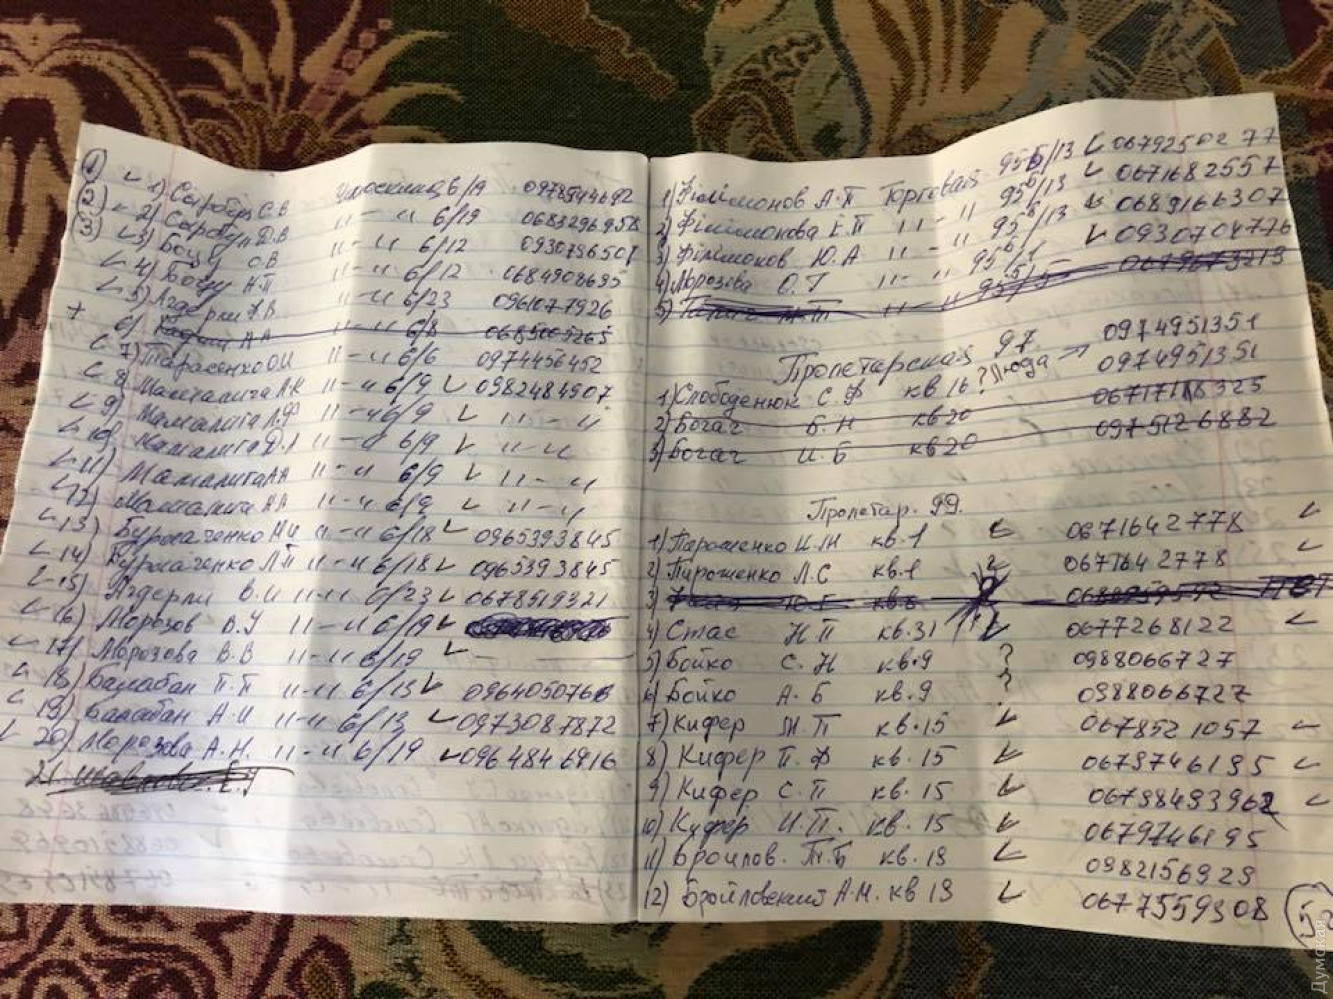 1
2
3
1) С В 6/19
2) Д.В 11-11 6/19 0683296958
3) Боцу О.В 11-11 6/12 0930736501
4) Боцу Н.П 11-11 6/12 0684908695
5) Агдерли В 11-11 6/23 0961077926
6) 11-11 6/8
7) Тарасенко О.И 11-11 6/6 0974456452
8 Мамалига А.К 11-11 6/9 0982484907
9) Мамалига Л.Ф 11-11 6/9 11-11
10) Мамалига Д.А 11-11 6/9 11-11
11) Мамалига А.А 11-11 6/9 11-11
12) Мамалига А.А 11-11 6/9 11-11
13) Бурлаченко Н.И 11-11 6/18 0965393845
14) Бурлаченко Л.П 11-11 6/18 0965393845
15) Агдерли В.И 11-11 6/23 0678519321
16) Морозов В.У 11-11 6/19
17) Морозова В.В 11-11 6/19
18) Балабан П.П 11-11 6/13 0964050766
19) Балабан А.И 11-11 6/13 0973087872
20) Морозова А.Н. 11-11 6/19 0964846916
21
1) Філімонов А.П Торговая 95б/13 0679250277
2) Філімонова Е.П 11-11 95б/13 0671682557
3) Філімонов Ю.А 11-11 95б/13 0689166307
4) Морозова О.Г 11-11 95б/1 0930704776
5) 11-11
Пролетарская 97.
0974951351
1) Слободенюк С.Ф кв 16 ? Люда 0974951351
2) Богач Б.Н кв 20
3) Богач И.Б кв 20 0975126882
Пролетар. 99.
1) Пароженко И.М кв.1 0671642778
2) Пироженко Л.С кв.1 0671642778
3)
4) Стас Н.П кв.31 0677268122
5) Бойко С.Н кв.9 ? 0988066727
6) Бойко А.Б кв.9 ? 0988066727
7) Кифер М.П кв.15 0678521057
8) Кифер П.Ф кв.15 0679746195
9) Кифер С.П кв.15 0679849396
10) Кифер И.П. кв.15 0679746195
11) Броилов. Т.Б кв.19 0982156929
12) Бройловский А.М. кв 19 0677559308
5
Думская